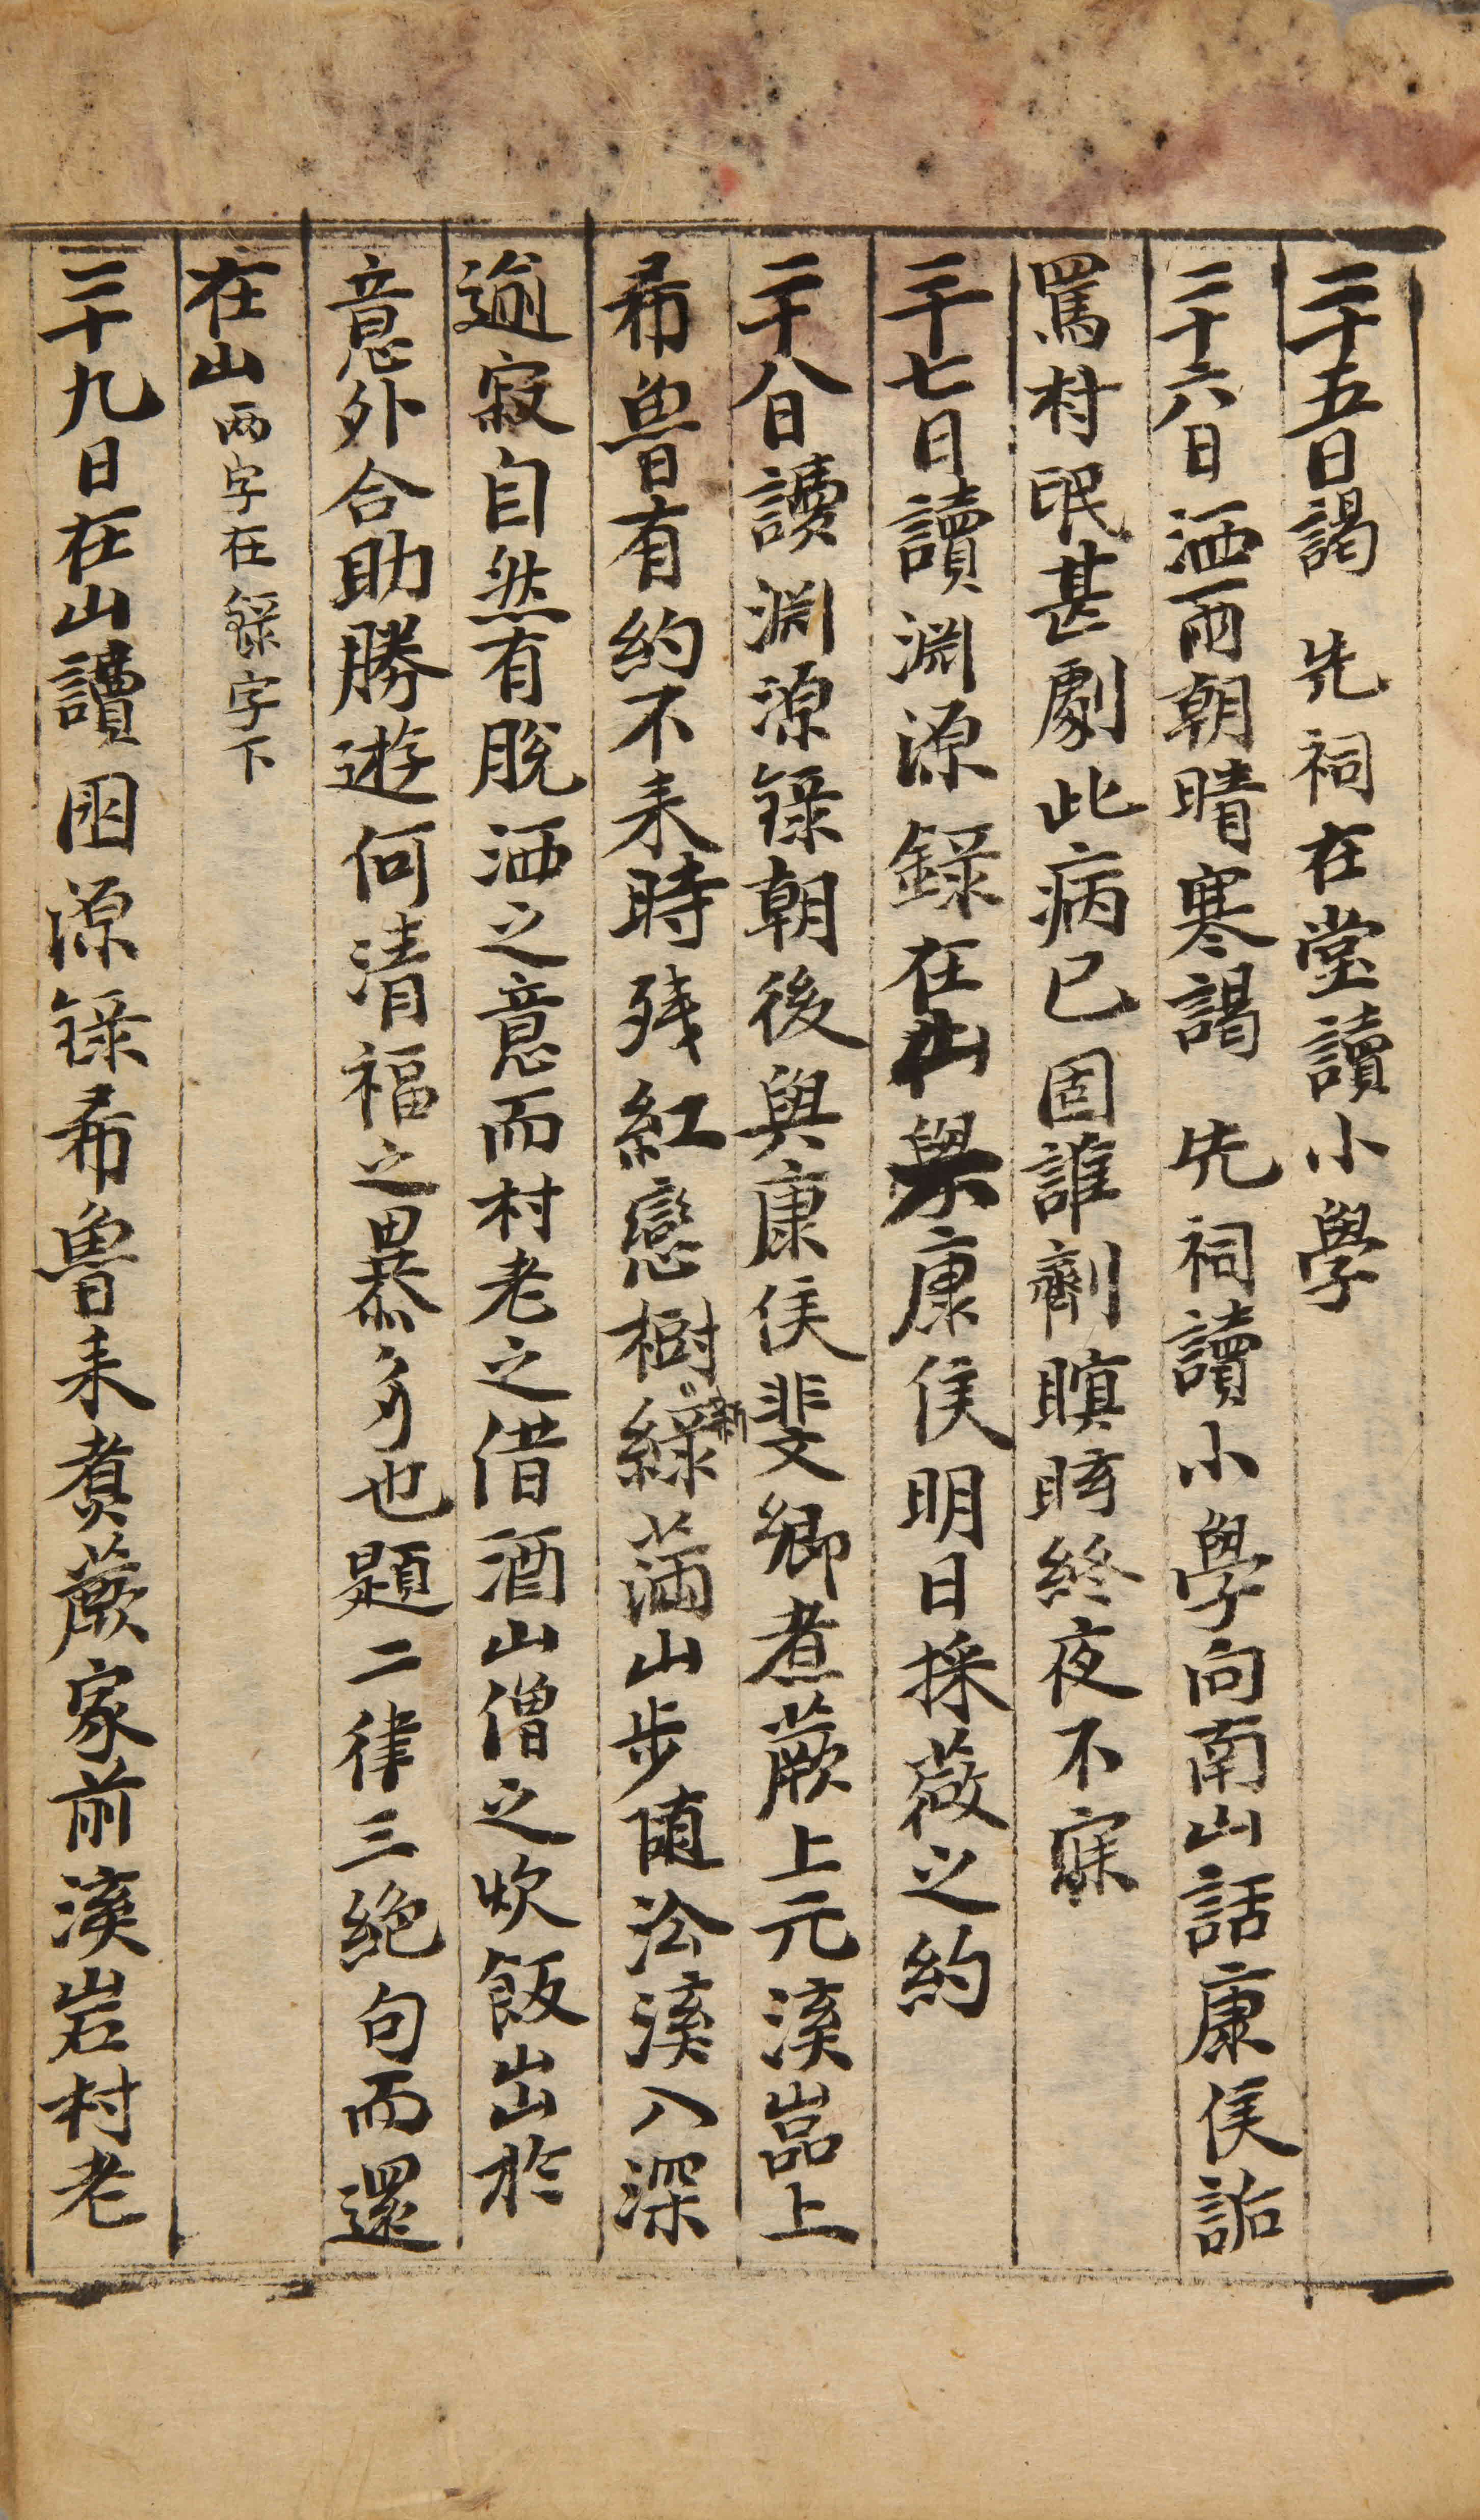 二十五日謁 先祠在堂讀小學
二十六日洒雨朝晴寒謁 先祠讀小學向南山話康侯詬
罵村氓甚劇此病已固誰劑瞑眩終夜不寐
二十七日讀淵源錄在山與康侯明日採薇之約
二十八日讀淵源錄朝後與康侯斐卿煮蕨上元溪嵒上
希魯有約不来時殘紅戀樹新綠滿山步随沿溪入深
逾寂自然有脫洒之意而村老之借酒山僧之炊飯出於
意外合助勝遊何清福之暴多也題二律三絶句而還
在山両字在錄字下
二十九日在山讀囦源錄希魯来煮蕨家前溪岩村老